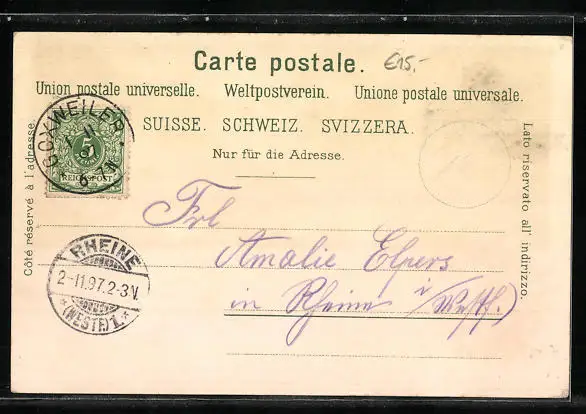 Carte postale.
€15,-
Union postale universelle. Weltpostverein. Unione postale universale.
SUISSE. SCHWEIZ. SVIZZERA.
Nur für die Adresse.
Côté réservé à l'adresse.
Lato riservato all' indirizzo.
5
REICHSPOST
Frl
Amalie Elpers
in Rheine i/Westf.)
RHEINE
2-11.97.2-3V.
*(WESTF.)1.*